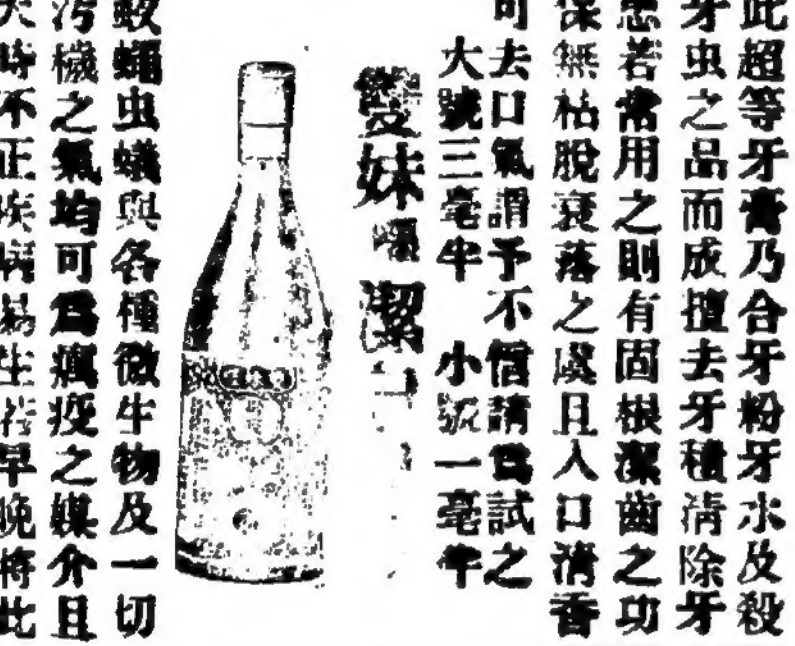 此超等牙膏乃合牙粉牙水及殺
牙虫之品而成擅去牙積清除牙
患若常用之則有固根潔齒之功
保無枯脫衰落之虞且入口清香
可去口氣謂予不信請爲試之
大號三毫半 小號一毫半
雙妹嚜 潔
蚊蠅虫蟻與各種微生物及一切
污穢之氣均可爲瘋疫之媒介且
天時不正疾病易生若早晚將此